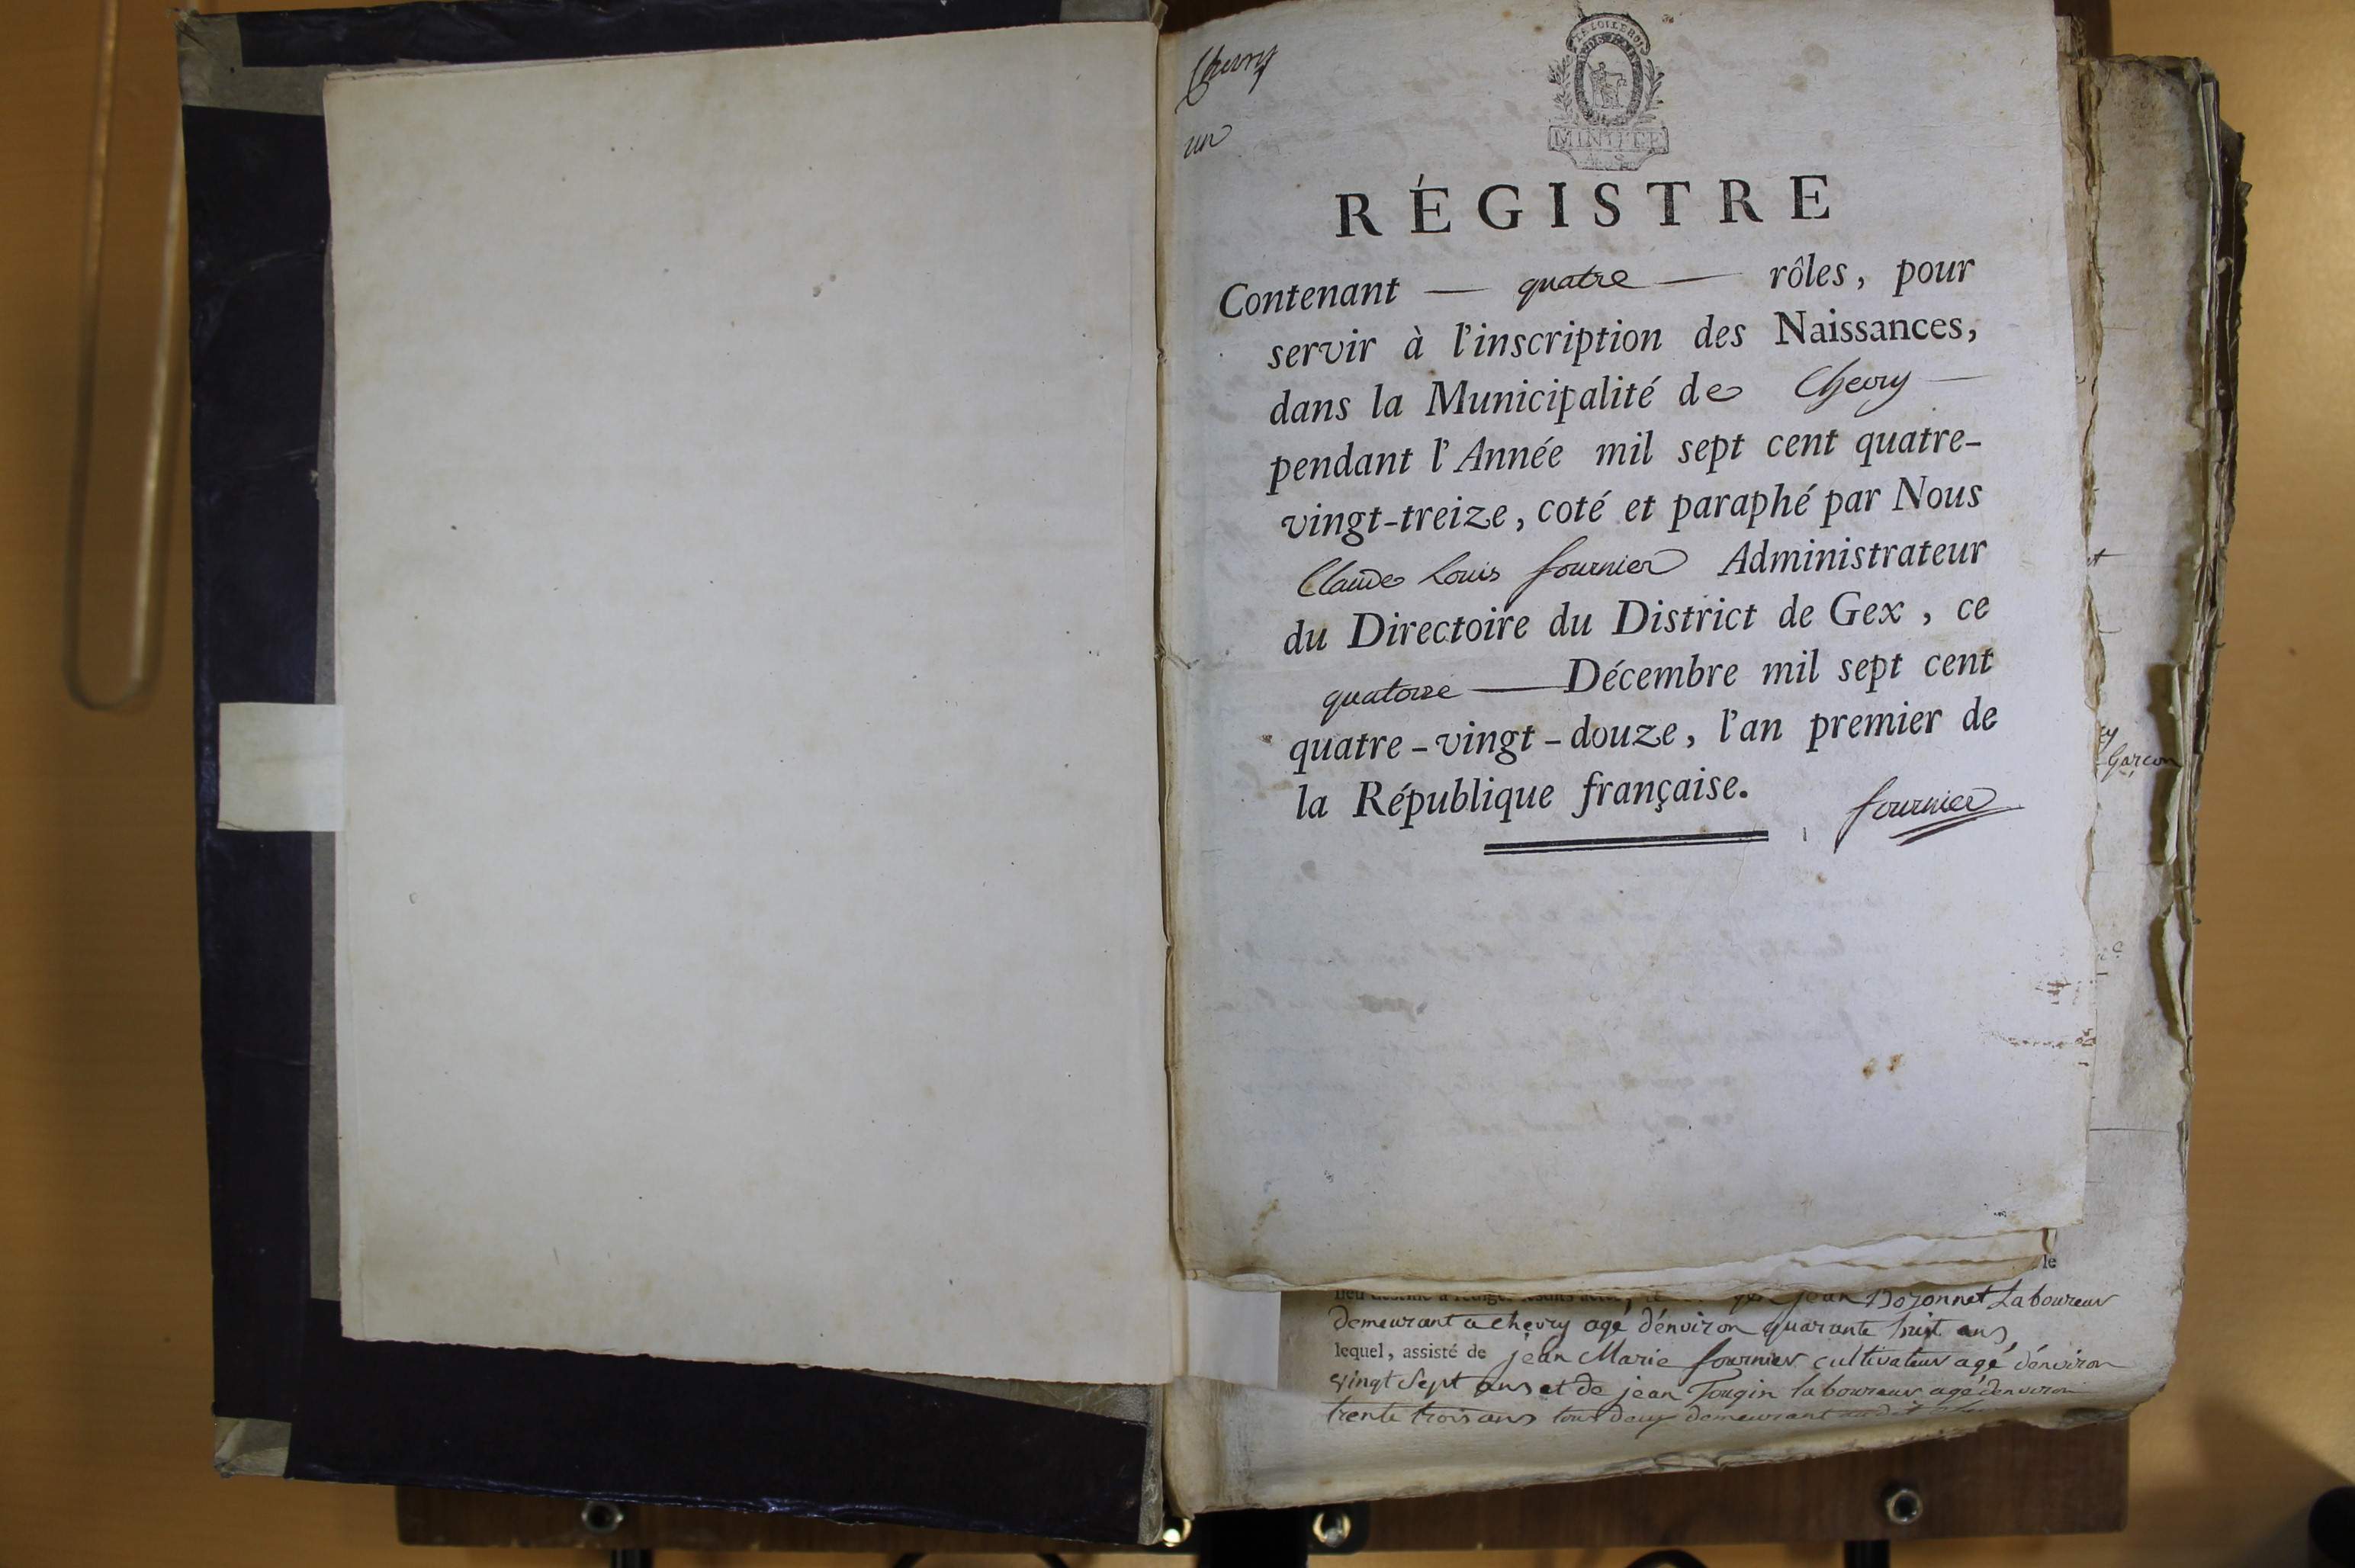 Chevry
un
LA LOI LE ROI
RÉGISTRE
Contenant — quatre — rôles, pour
servir à l'inscription des Naissances,
dans la Municipalité de Chevry —
pendant l'Année mil sept cent quatre-
vingt-treize, coté et paraphé par Nous
Claude Louis fournier Administrateur
du Directoire du District de Gex, ce
quatorze — Décembre mil sept cent
quatre-vingt-douze, l'an premier de
la République française.
fournier
Garcon
le
jean Bozonnet Laboureur
demeurant a chevry agé d'énviron quarante huit ans,
lequel, assisté de jean Marie fournier cultivateur agé d'énviron
vingt Sept ans et de jean Tougin laboureur agé d'environ
trente trois ans tous deux demeurant audit